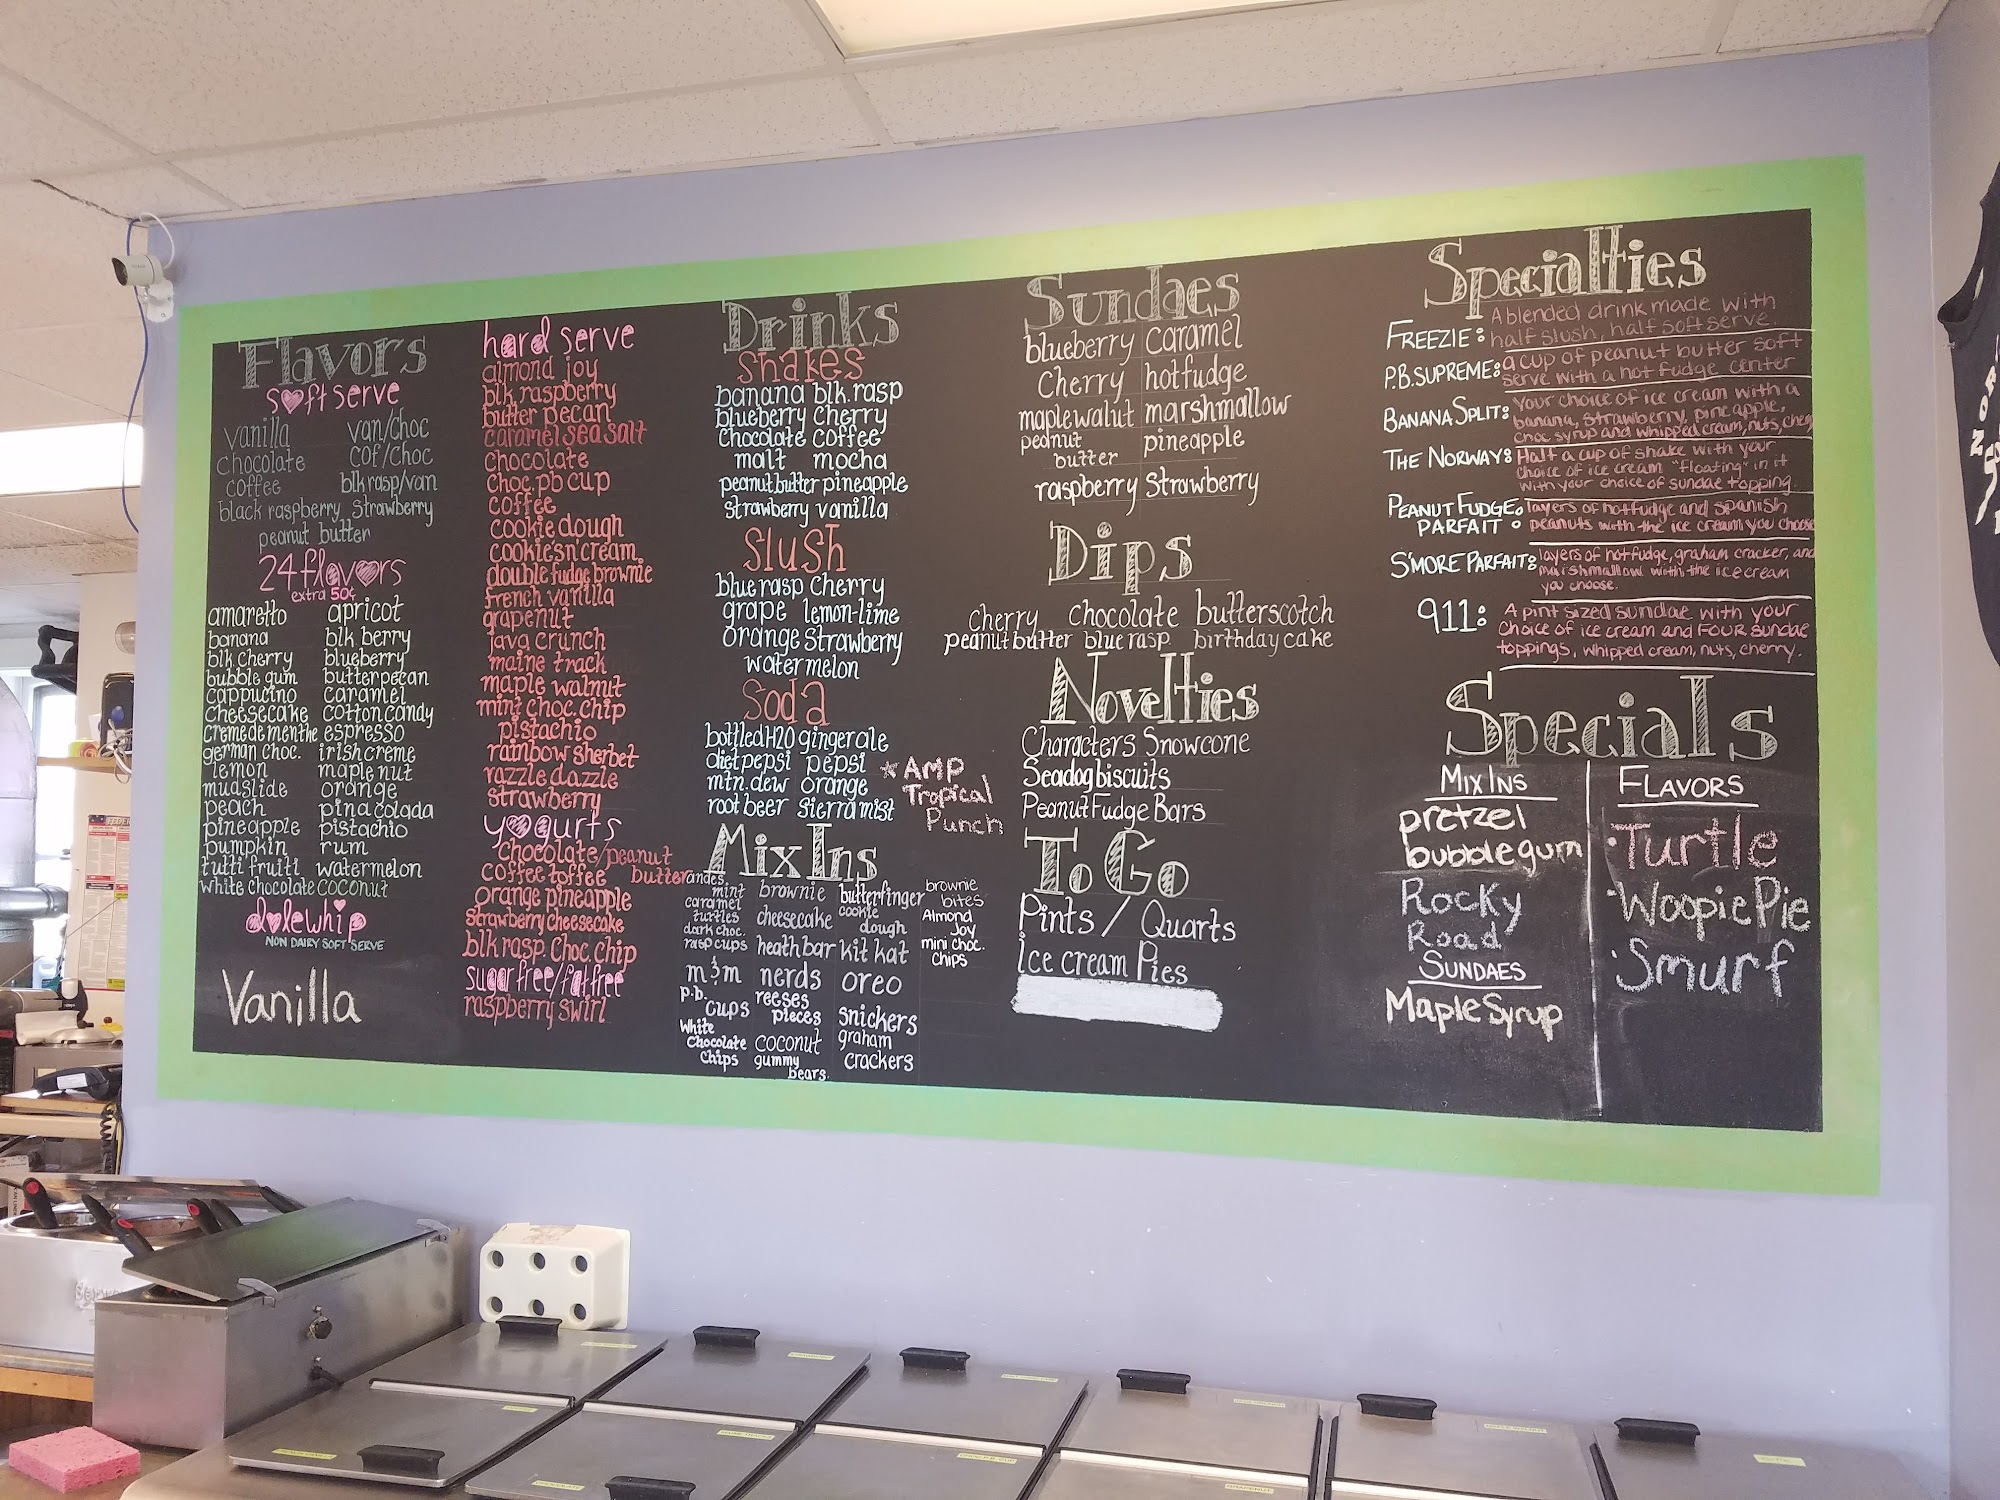 Flavors
soft serve
vanilla van/choc
chocolate cof/choc
coffee blk rasp/van
black raspberry strawberry
peanut butter
24 flavors
extra 50¢
amaretto apricot
banana blk berry
blk cherry blueberry
bubble gum butterpecan
cappucino caramel
cheesecake cotton candy
creme de menthe espresso
german choc. irish creme
lemon maple nut
mudslide orange
peach pina colada
pineapple pistachio
pumpkin rum
tutti fruiti watermelon
white chocolate coconut
dolewhip
NON DAIRY SOFT SERVE
Vanilla
hard serve
almond joy
blk raspberry
butter pecan
caramel sea salt
chocolate
choc.pb cup
coffee
cookie dough
cookies n' cream
double fudge brownie
french vanilla
grapenut
java crunch
maine track
maple walnut
mint choc. chip
pistachio
rainbow sherbet
razzle dazzle
strawberry
yogurts
chocolate/peanut
butter
coffee toffee
orange pineapple
strawberry cheesecake
blk rasp. choc. chip
sugar free/fat free
raspberry swirl
Drinks
shakes
banana blk. rasp
blueberry cherry
chocolate coffee
malt mocha
peanut butter pineapple
strawberry vanilla
slush
blue rasp cherry
grape lemon-lime
orange strawberry
watermelon
soda
bottled H2O gingerale
diet pepsi pepsi
mtn. dew orange
root beer sierra mist
* AMP
Tropical
Punch
Mix Ins
andes
mint
brownie
butterfinger
brownie
bites
caramel
turtles
cheesecake
cookie
dough
Almond
Joy
dark choc.
rasp cups
heath bar
kit kat
mini choc.
chips
m&m nerds oreo
p.b.
cups
reeses
pieces
snickers
White
Chocolate
Chips
coconut
graham
crackers
gummy
bears.
Sundaes
blueberry caramel
Cherry hot fudge
maple walnut marshmallow
peanut
butter
pineapple
raspberry Strawberry
Dips
Cherry chocolate butterscotch
peanut butter blue rasp birthday cake
Novelties
Characters Snowcone
Seadog biscuits
Peanut Fudge Bars
To Go
Pints / Quarts
Ice cream Pies
Specialties
FREEZIE: A blended drink made with
half slush, half soft serve.
P.B. SUPREME: a cup of peanut butter soft
serve with a hot fudge center
BANANA SPLIT: Your choice of ice cream with a
banana, strawberry, pineapple,
choc syrup and whipped cream, nuts, cherry
THE NORWAY: Half a cup of shake with your
choice of ice cream "Floating" in it
with your choice of sundae topping.
PEANUT FUDGE
PARFAIT: layers of hot fudge and spanish
peanuts with the ice cream you choose
S'MORE PARFAIT: layers of hot fudge, graham cracker, and
marshmallow with the ice cream
you choose.
911: A pint sized sundae with your
choice of ice cream and FOUR sundae
toppings, whipped cream, nuts, cherry.
Specials
MIX INS
pretzel
bubblegum
Rocky
Road
SUNDAES
Maple Syrup
FLAVORS
·Turtle
·Woopie Pie
·Smurf